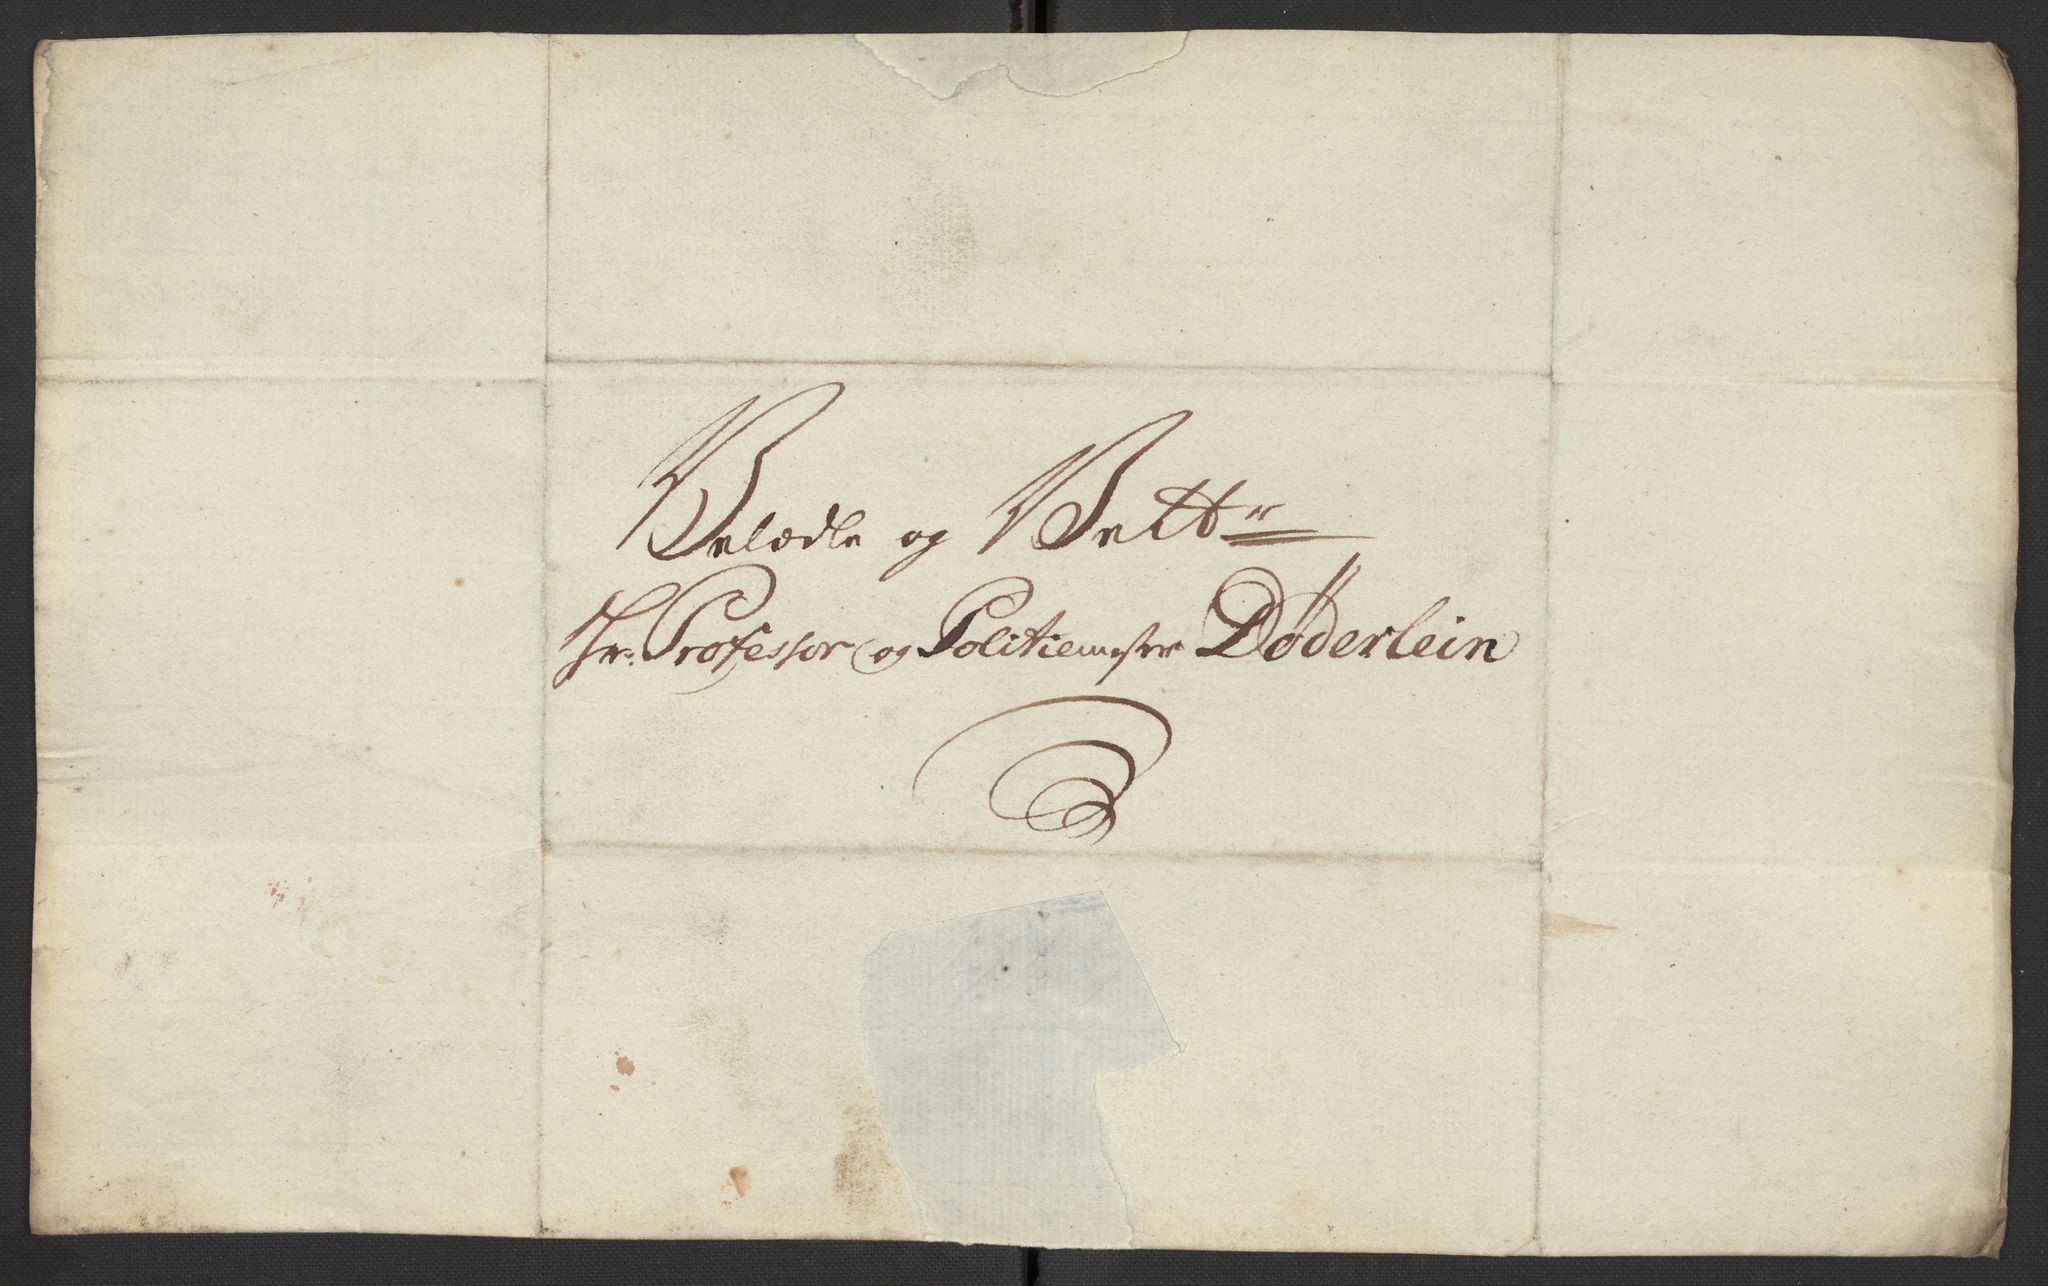 Velædle og Velb:r
Hr: Professor og Politiemester Døderlein